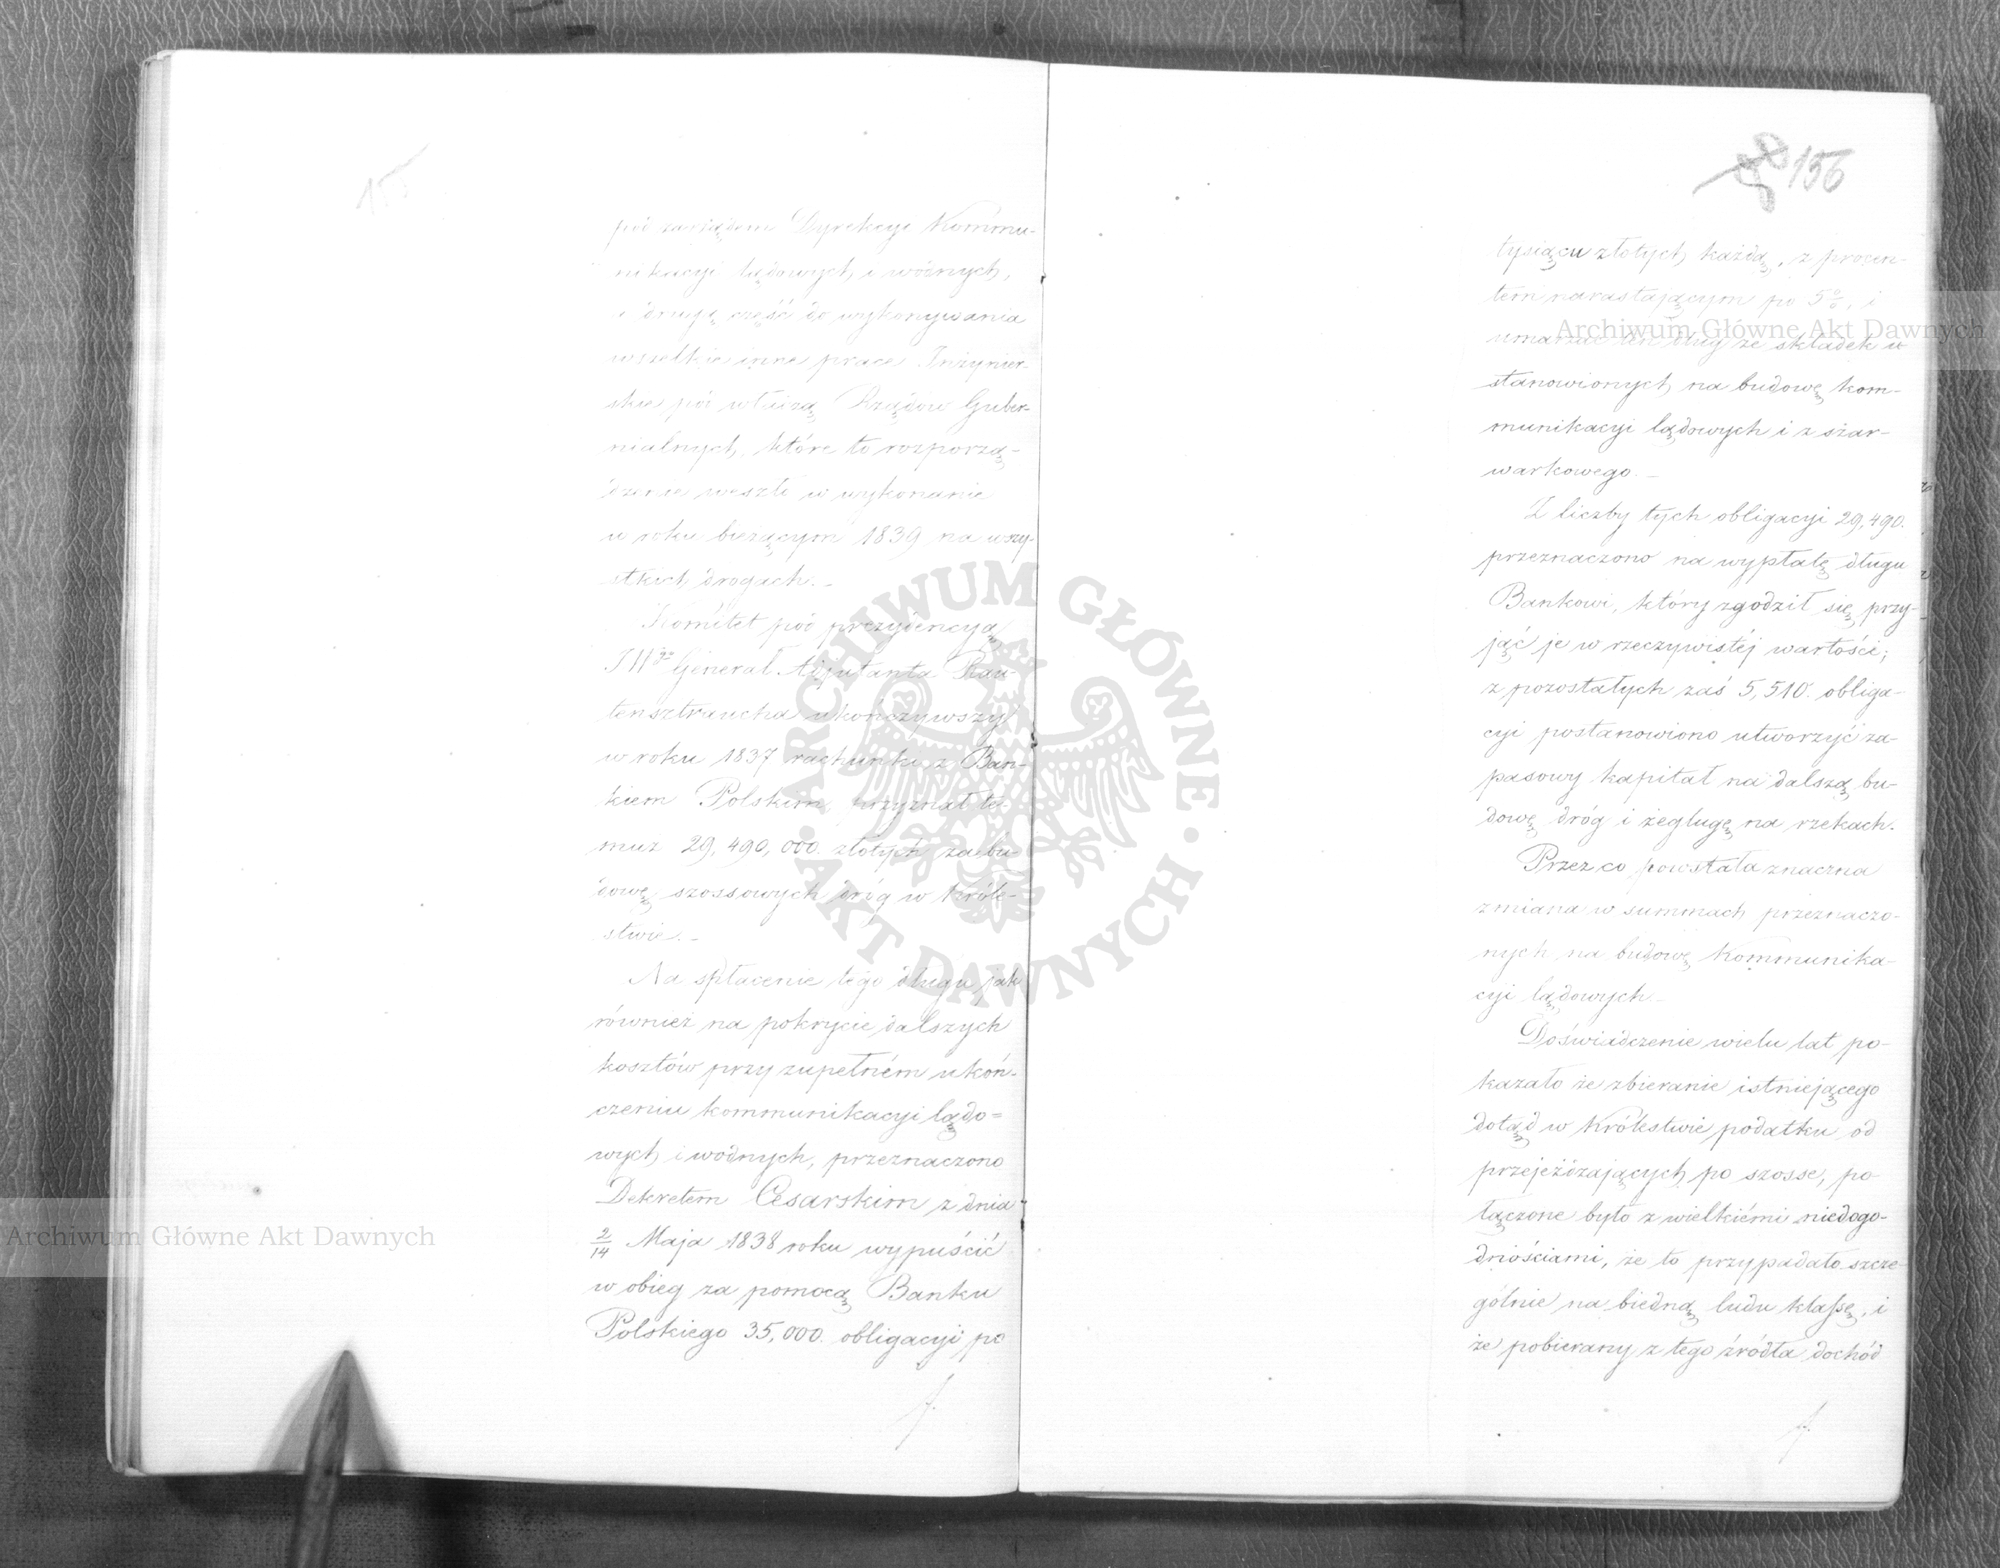 155
pód zarządem Dyrekcyi Kommu-
nikacyi lądowych i wódnych,
a drugą część do wykonywania
wszelkie inne prace Inżynier-
skie pód władzą Rządów Guber-
nialnych, które to rozporzą-
dzenie weszło w wykonanie
w roku bieżącym 1839 na wszy-
stkich drogach. -
Komitet pód prezydencyą
JWgo Generał Adjutanta Rau-
tensztraucha ukończywszy
w roku 1837 rachunki z Ban-
kiem Polskim, przyznał te-
muż 29,490,000 złotych za bu-
dowę szossowych dróg w Króle-
stwie. -
Na spłacenie tego długu jak
również na pokrycie dalszych
kosztów przy zupełném ukoń-
czeniu kommunikacyi lądo=
wych i wodnych, przeznaczono
Dekretem Cesarskim z dnia
2/14 Maja 1838 roku wypuścić
w obieg za pomocą Banku
Polskiego 35,000. obligacyi po
156
tysiącu złotych każda, z procen-
tem narastającym po 5%, i
umarzać ten dług ze składek u
stanowionych na budowę kom-
munikacyi lądowych i z szar-
warkowego. -
Z liczby tych obligacyi 29,490.
przeznaczono na wypłatę długu
Bankowi, który zgodził się przy-
jąć je w rzeczywistéj wartości;
z pozostałych zaś 5,510. obliga-
cyi postanowiono utworzyć za-
pasowy kapitał na dalszą bu-
dowę dróg i żeglugę na rzekach.
Przez co powstała znaczna
zmiana w summach przeznaczo-
nych na budowę Kommunika-
cyi lądowych. -
Doświadczenie wielu lat po-
kazało że zbieranie istniejącego
dotąd w Królestwie podatku od
przejeżdzających po szosse, po
łączone było z wielkiémi niedogo-
dnościami, że to przypadało szcze-
gólnie na biedną ludu klassę, i
że pobierany z tego źródła dochód
Archiwum Główne Akt Dawnych
Archiwum Główne Akt Dawnych
ARCHIWUM GŁÓWNE • AKT DAWNYCH •